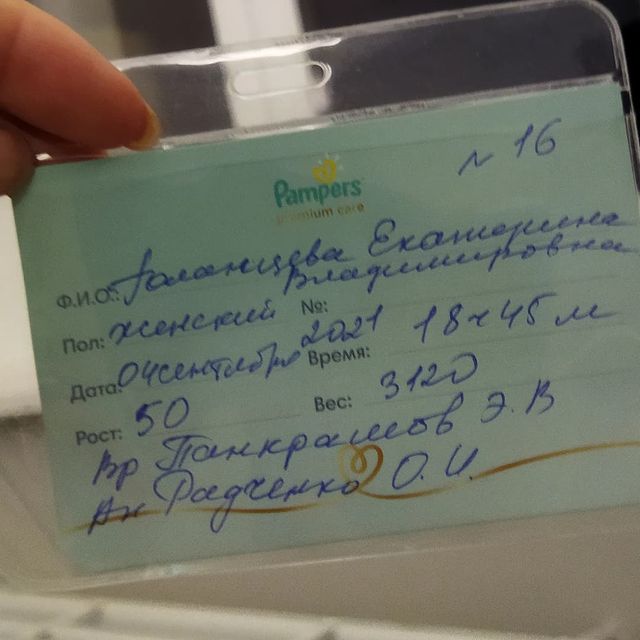 N 16
Pampers
premium care
Ф.И.О.: Галанцева Екатерина
Владимировна
Пол: женский №:
Дата: 04 сентября 2021 Время: 18ч 45 м
Рост: 50 Вес: 3120
Вр Панкратов Э. В
Ак Радченко О. И.